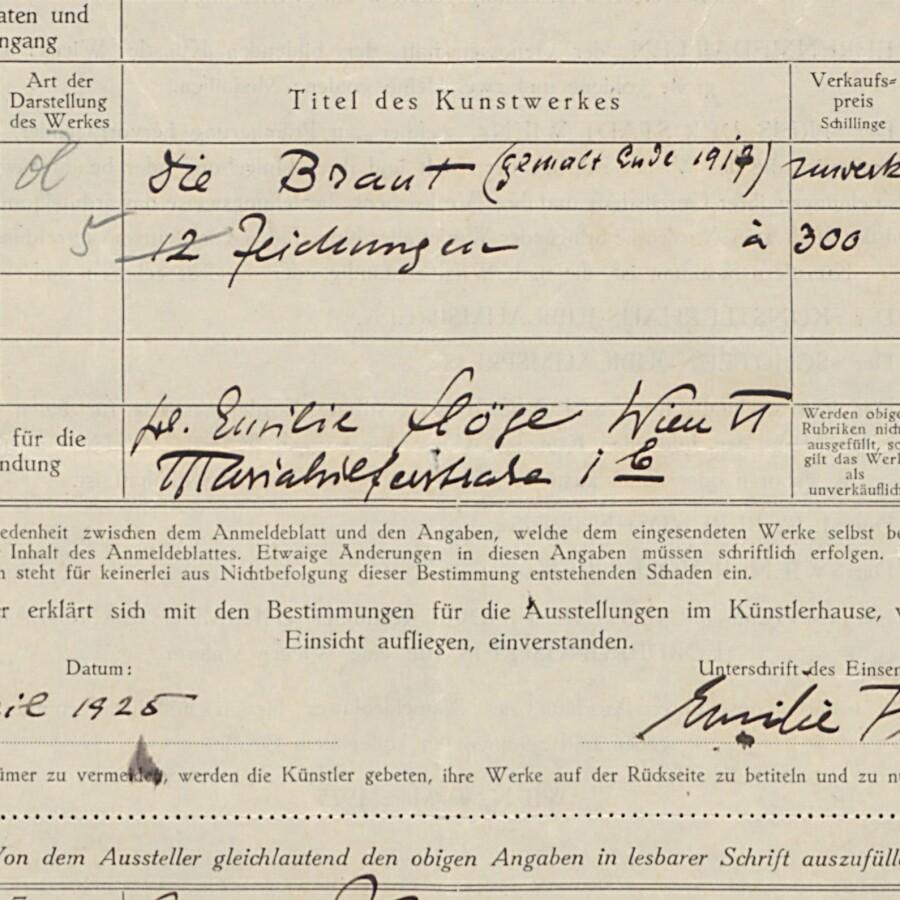 aten und
ngang
Art der
Darstellung
des Werkes
Titel des Kunstwerkes
Verkaufs-
preis
Schillinge
Öl
Die Braut (gemalt Ende 1917)
5 12 Zeichnungen à 300
für die
ndung
frl. Emilie Flöge Wien VI
Mariahilferstrasse 1 B
Werden obige
Rubriken nich
ausgefüllt, so
gilt das Werk
als
unverkäuflich
edenheit zwischen dem Anmeldeblatt und den Angaben, welche dem eingesendeten Werke selbst be
Inhalt des Anmeldeblattes. Etwaige Änderungen in diesen Angaben müssen schriftlich erfolgen.
n steht für keinerlei aus Nichtbefolgung dieser Bestimmung entstehenden Schaden ein.
r erklärt sich mit den Bestimmungen für die Ausstellungen im Künstlerhause, v
Einsicht aufliegen, einverstanden.
Datum:
Unterschrift des Einsen
ril 1925
Emilie F
ümer zu vermeiden, werden die Künstler gebeten, ihre Werke auf der Rückseite zu betiteln und zu n
Von dem Aussteller gleichlautend den obigen Angaben in lesbarer Schrift auszufülle